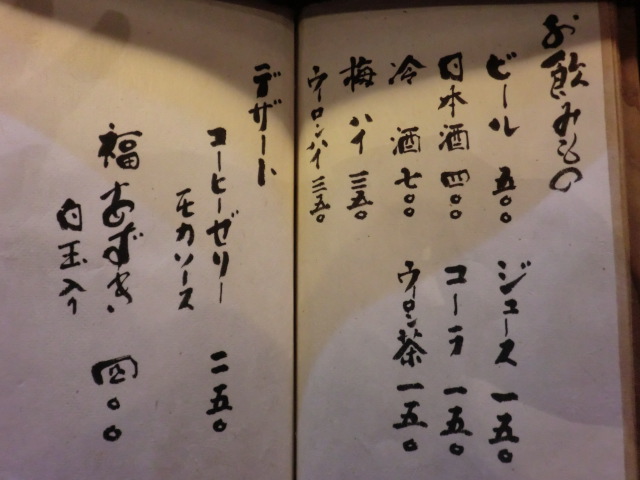 お飲みもの
ビール 五〇〇
日本酒 四〇〇
冷酒 七〇〇
梅ハイ 三五〇
ウーロンハイ 三五〇
ジュース 一五〇
コーラ 一五〇
ウーロン茶 一五〇
デザート
コーヒーゼリー 二五〇
モカソース
福あずき 四〇〇
白玉入り